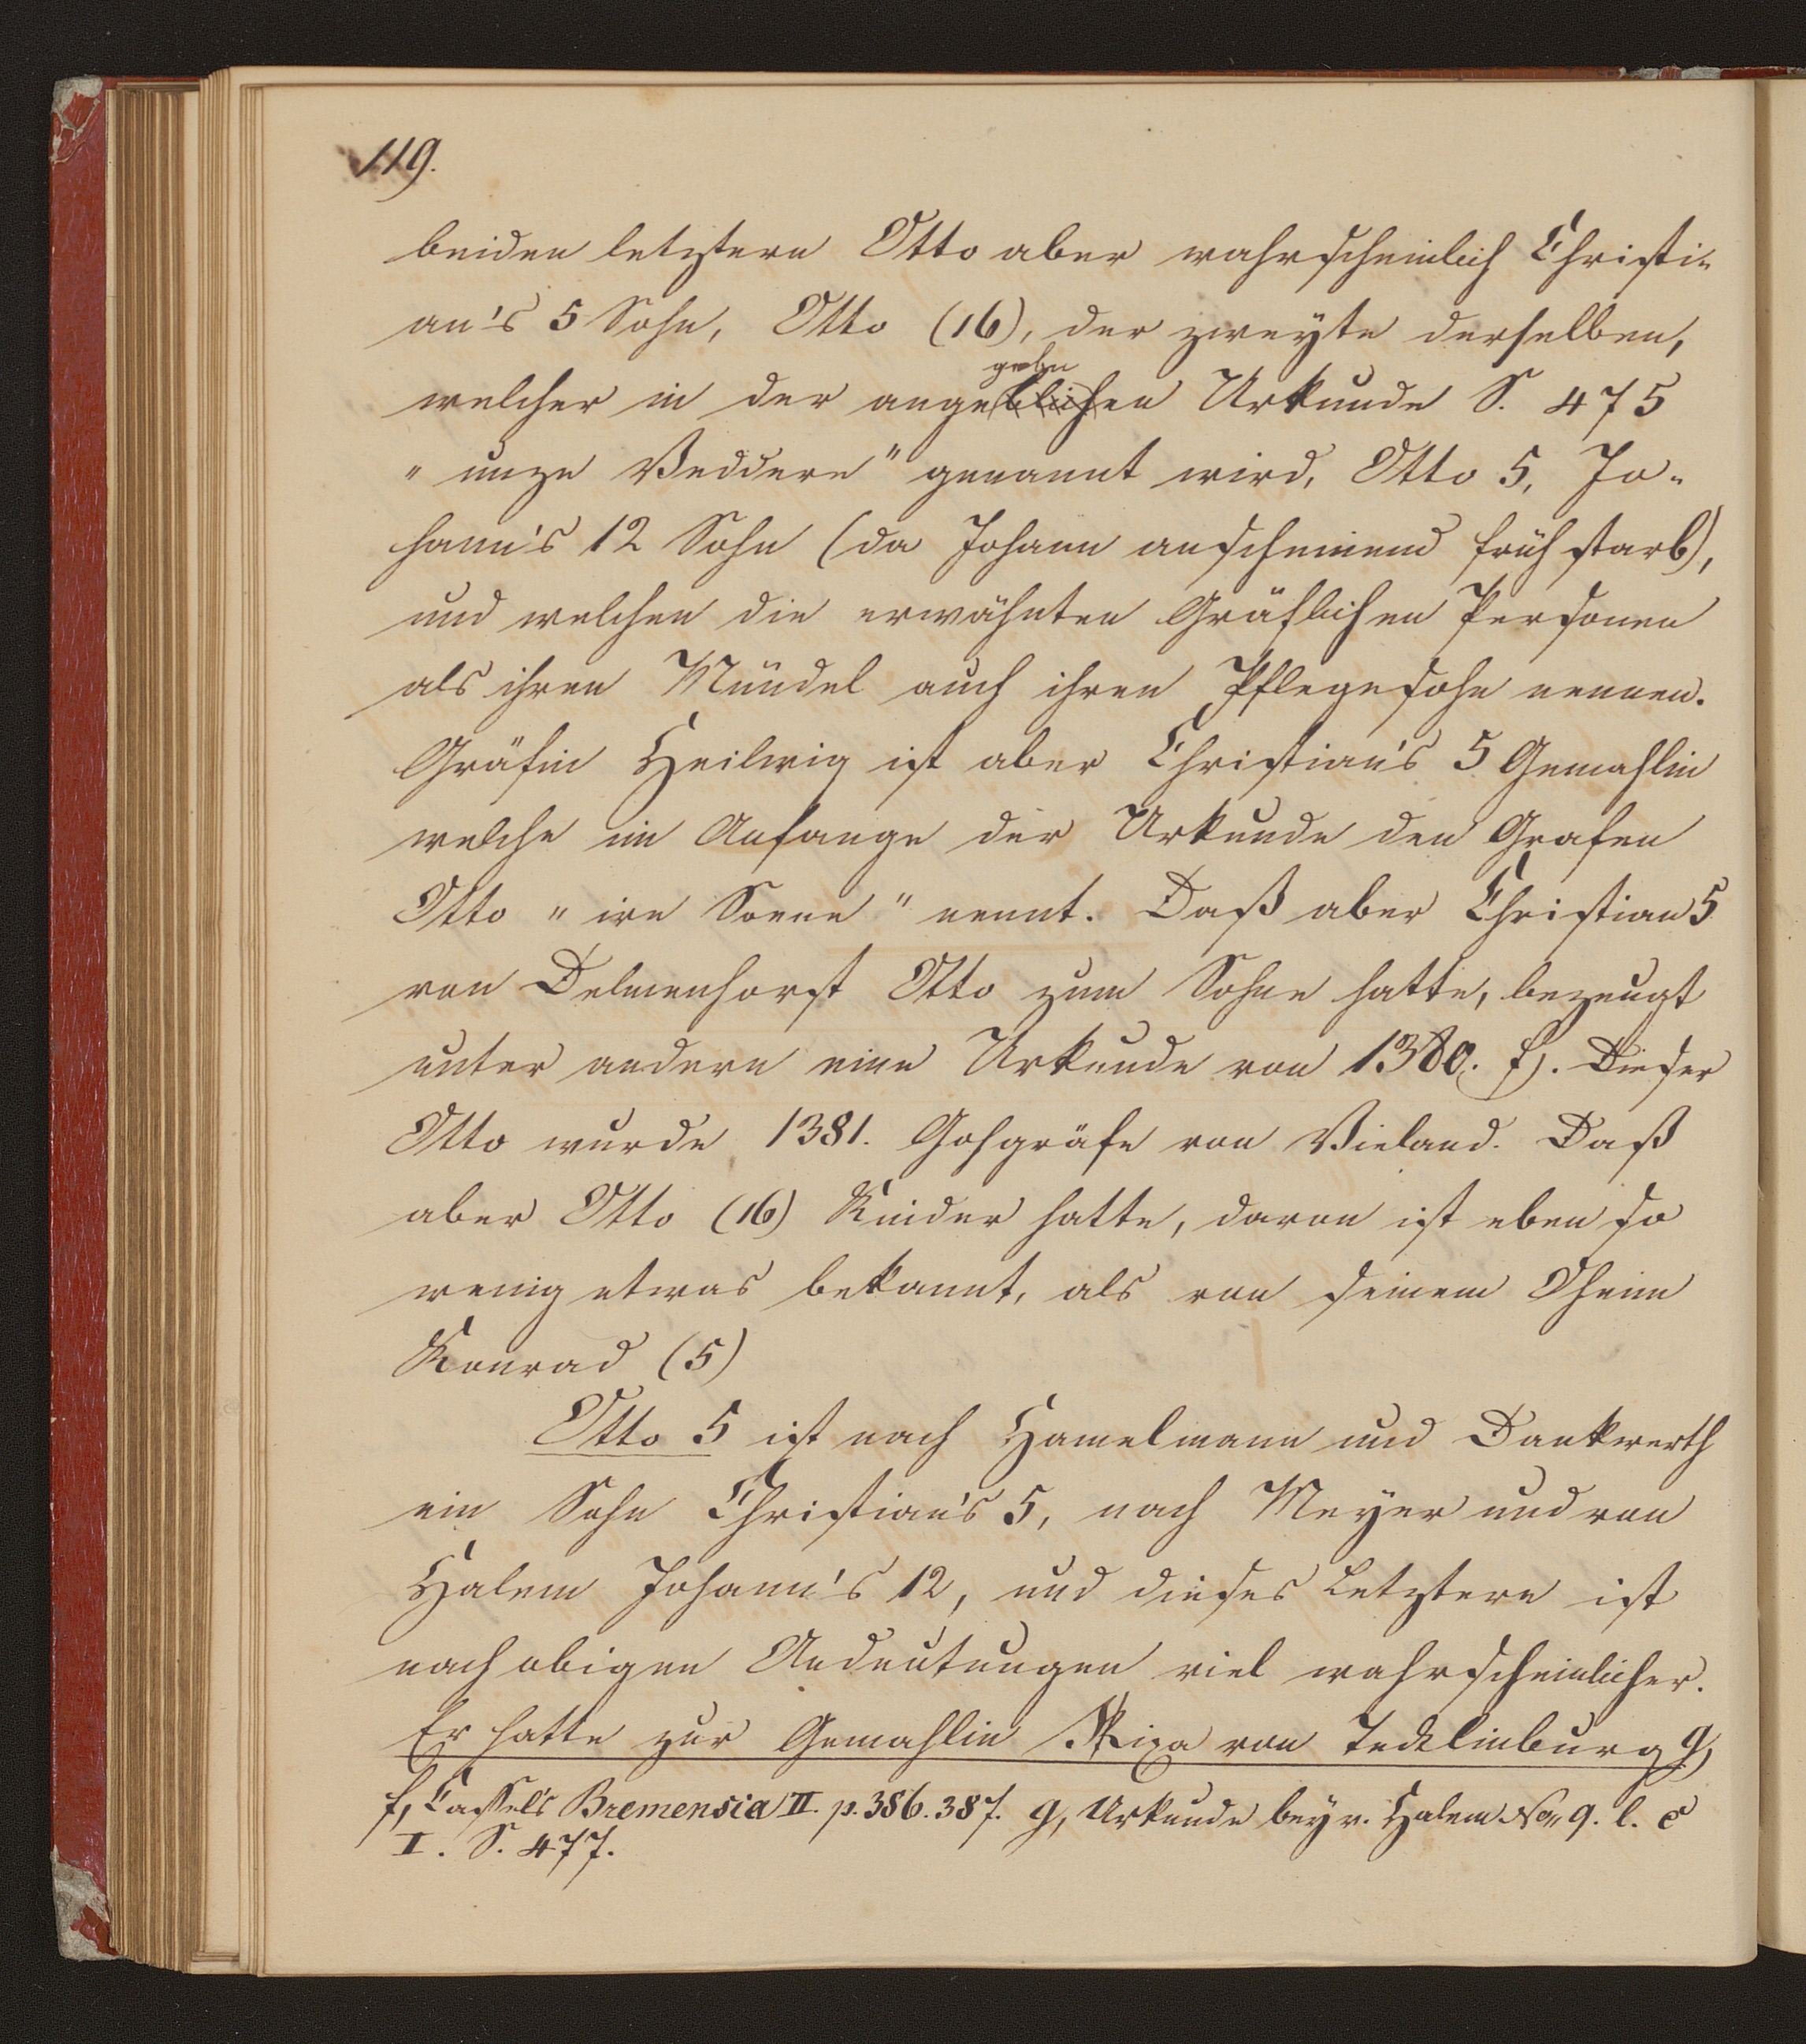 119.
beiden letztern Otto aber wahrscheinlich Christi-
an's 5 Sohn, Otto (16), der zweyte derselben,
welcher in der angegebnen Urkunde S. 475
"unze Veddere" genannt wird, Otto 5, Jo-
hann's 12 Sohn (da Johann anscheinend früh starb),
und welchen die erwähnten Gräflichen Personen
als ihren Mündel auch ihren Pflegesohn nennen.
Gräfin Heilwig ist aber Christian's 5 Gemahlin
welche im Anfange der Urkunde den Grafen
Otto "ire Sonne" nennt. Daß aber Christian 5
von Delmenhorst Otto zum Sohne hatte, bezeugt
unter andern eine Urkunde von 1380. f). Dieser
Otto wurde 1381. Gohgräfe von Vieland. Daß
aber Otto (16) Kinder hatte, davon ist eben so
wenig etwas bekannt, als von seinem Oheim
Konrad (5)
Otto 5 ist nach Hamelmann und Dankwerth
ein Sohn Christian's 5, nach Meyer und von
Halem Johann's 12, und dieses Letztere ist
nach obigen Andeutungen viel wahrscheinlicher.
Er hatte zur Gemahlin Rixa von Tecklinburg g)
f, Cassel's Bremensia II. p. 386. 387. g, Urkunde bey v. Halem No 9. l. c
I. S. 477.